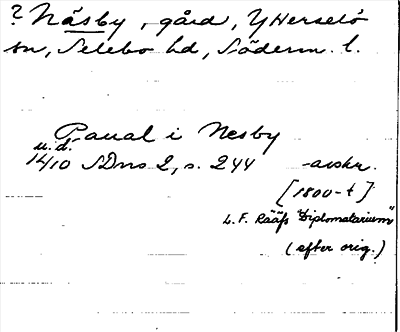 ? Näsby, gård, Ytterselö
sn, Selebo hd, Söderm. l.
Paual i Nesby
u.d.
14/10 SDns 2, s. 244 -avskr.
[1800-t]
L. F. Rääfs "Diplomatarium"
(efter orig.)